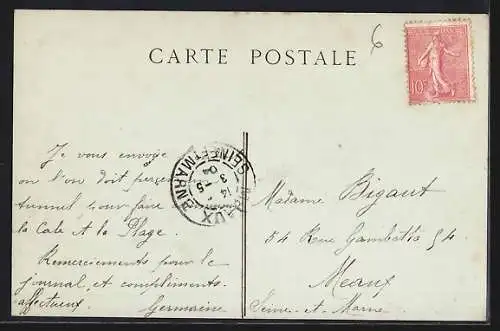 6
CARTE POSTALE
10c
Je vous envoie
où l'on doit percer
tunnel pour faire
la Cale et la Plage.
Remerciements pour le
journal et compliments
affectueux. Germaine
MEAUX
SEINE-ET-MARNE
14
3-5
04
Madame Bigaut
54 Rue Gambetta 54
Meaux
Seine-et-Marne